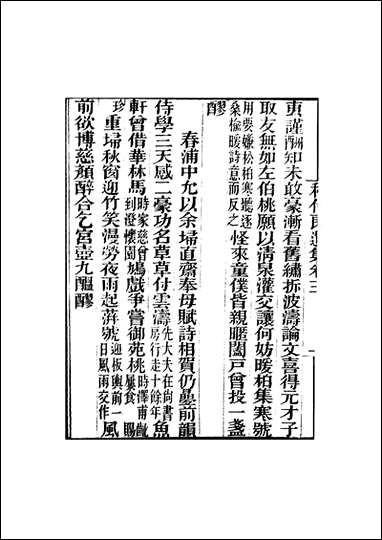 夷謹酬知未敢豪漸看舊繡拆波濤論文喜得元才子
取友無如左伯桃願以清泉灌交讓何妨暖柏集寒號
用要嫌松柏寒聽逐
桑榆暖詩意而反之
怪來童僕皆親暱闔戶曾投一盞
醪
春浦中允以余埽直齋奉母賦詩相質仍疊前韻
侍學三天感二豪功名草草付雲濤
先大夫在尚書
房行走十餘年
魚
軒曾借華林馬
時家慈曾
到澄懷園
鳩戲爭嘗御苑桃
時澤甫齔
屢食賜
珍
重埽秋窗迎竹笑漫勞夜雨起蓱號
迎板輿前一
日風雨交作
風
前欲博慈顏醉合乞宮壺九醞醪
集卷三
一